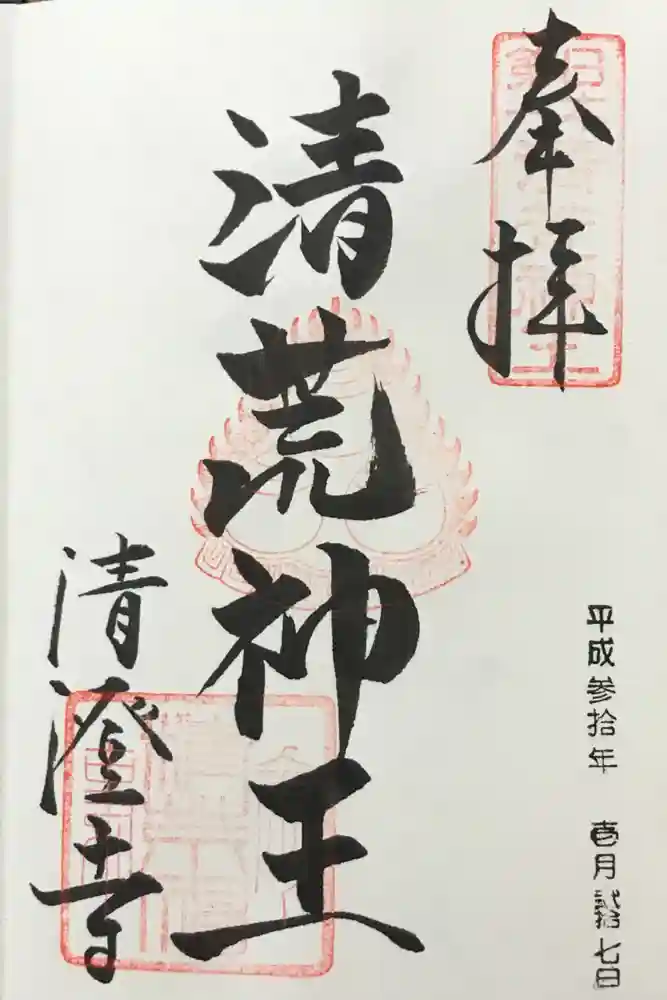 奉拝
平成参拾年 壱月弐拾七日
清荒神王
清澄寺